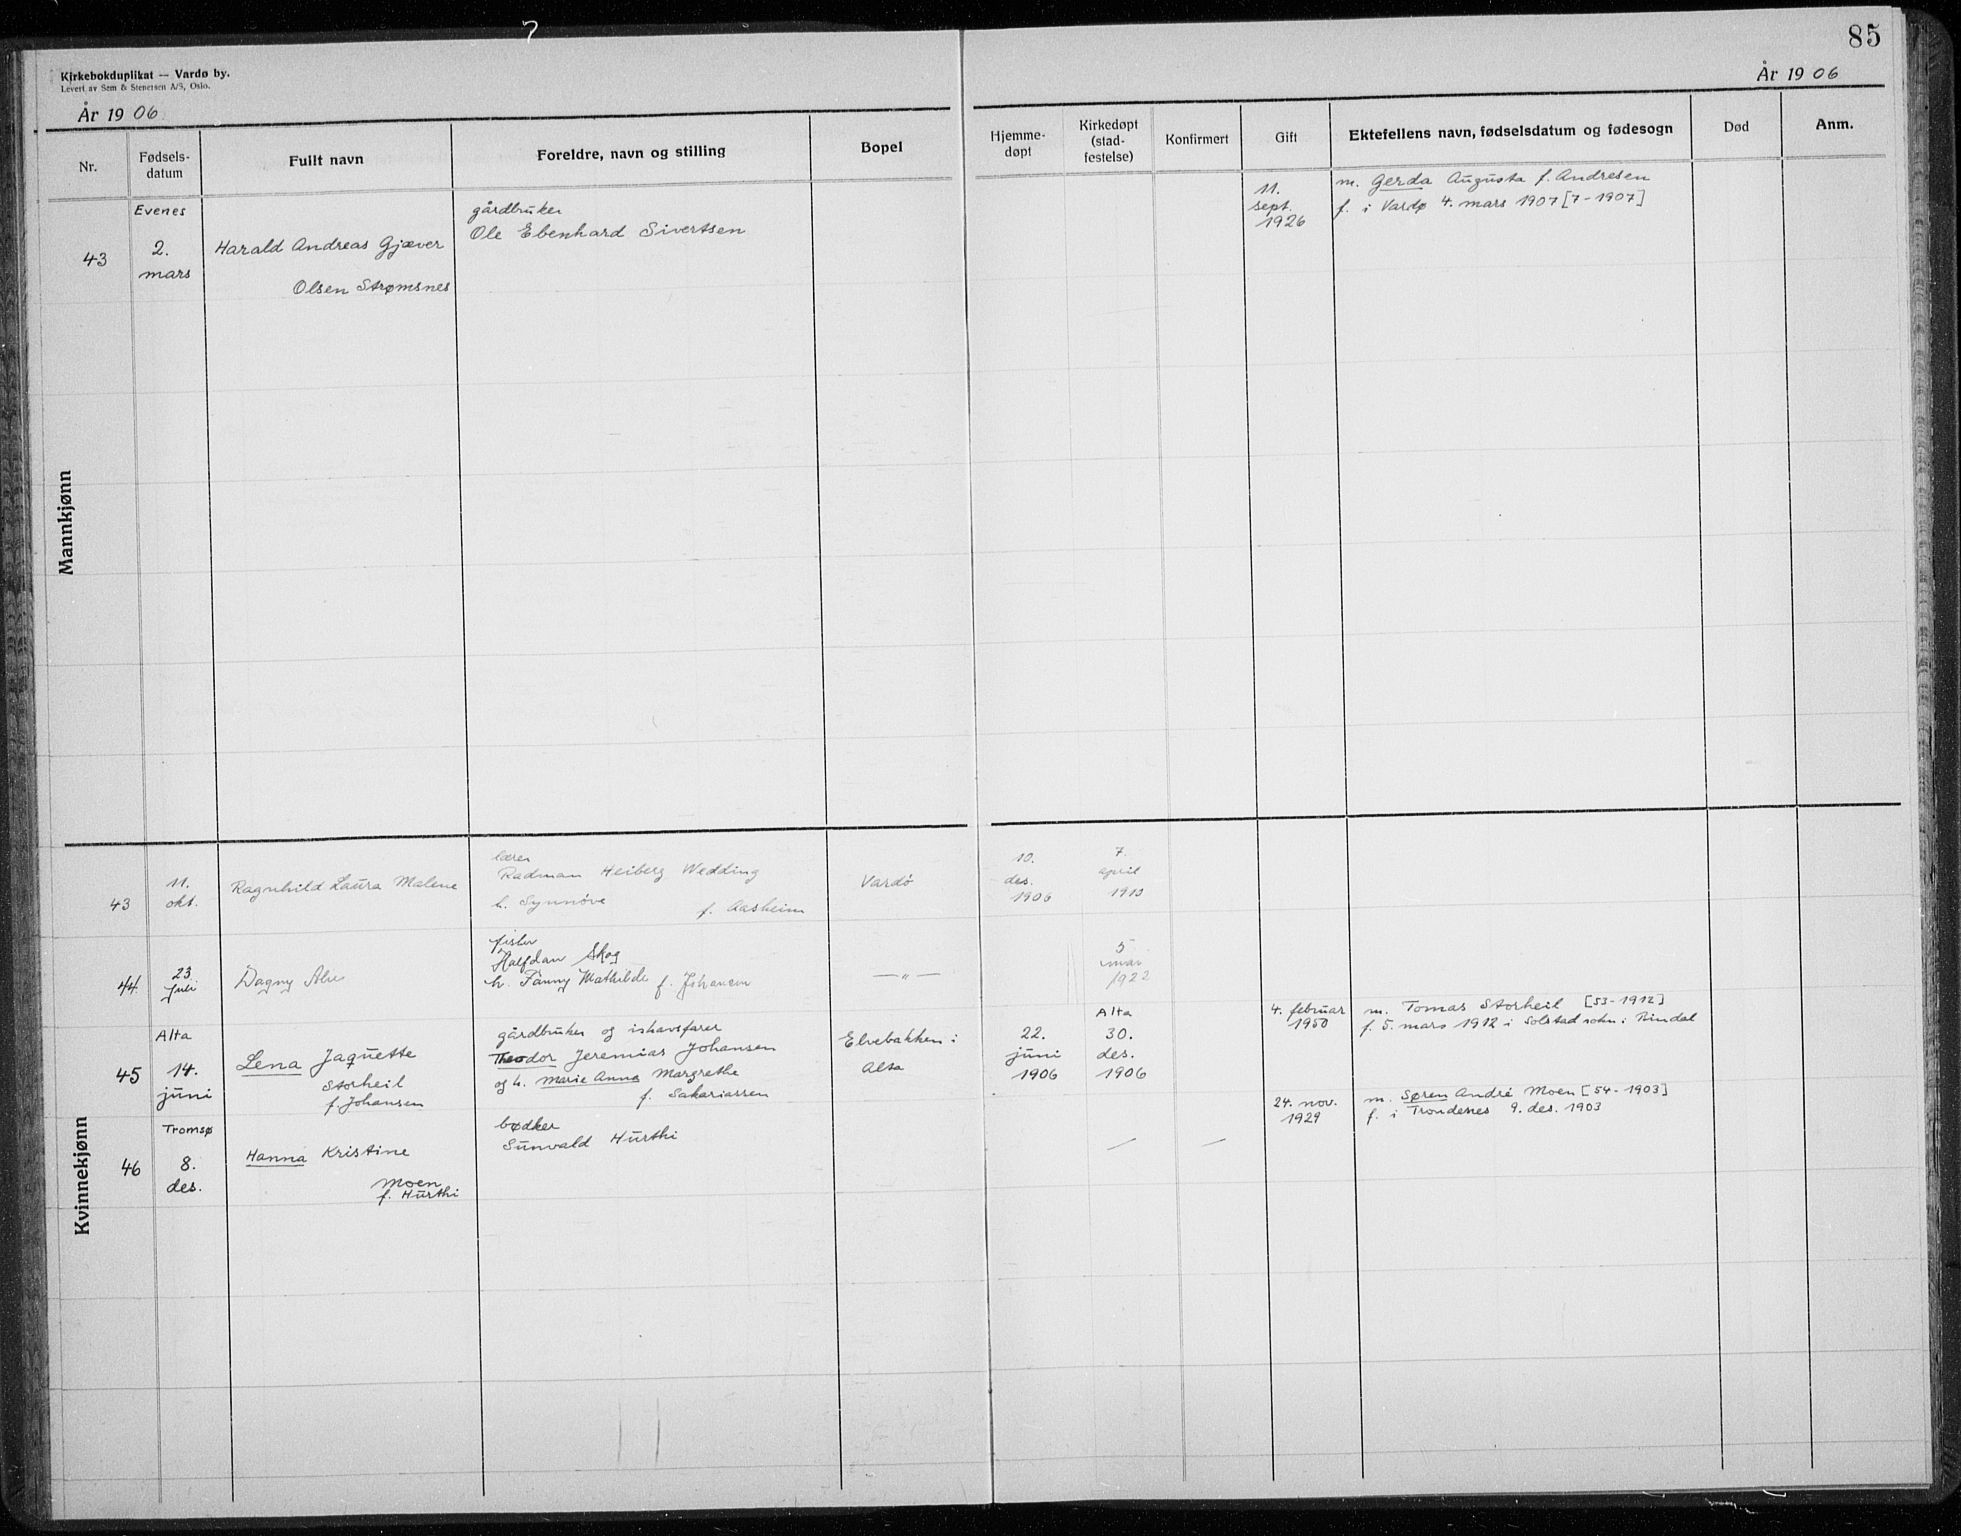 85
Kirkebokduplikat — Vardø by.
Levert av Sem & Stenersen A/S, Oslo.
År 1906
År 1906
Nr.
Fødsels-
datum
Fullt navn
Foreldre, navn og stilling
Bopel
Hjemme-
døpt
Kirkedøpt
(stad-
festelse)
Konfirmert
Gift
Ektefellens navn, fødselsdatum og fødesogn
Død
Anm.
Mannkjønn
43
Evenes
2.
mars
Harald Andreas Gjæver
Olsen Strømsnes
gårdbruker
Ole Ebenhard Sivertsen
11.
sept.
1926
m. Gerda Augusta f. Andresen
f. i Vardø 4. mars 1907 [7-1907]
Kvinnekjønn
43
11.
okt.
Ragnhild Laura Malene
lærer
Radman Heiberg Wedding
h. Synnöve f. Aasheim
Vardö
10.
des.
1906
7.
april
1910
44
23
juli
Dagny
fisker
Halfdan Skog
h. Fanny Mathilde f. Johansen
— „ —
5
mar
1922
45
Alta
14.
juni
Lena Jaquette
Storheil
f. Johansen
gårdbruker og ishavsfarer
Theodor Jeremias Johansen
og h. Marie Anna Margrethe
f. Sakariassen
Elvebakken i
Alta
22.
juni
1906
Alta
30.
des.
1906
4. februar
1950
m. Tomas Storheil [53-1912]
f. 5. mars 1912 i Solstad sokn i Bindal
46
Tromsø
8.
des.
Hanna Kristine
Moen
f. Hurthi
bødker
Sunvald Hurthi
—
—
24. nov.
1929
m. Søren André Moen [54-1903]
f. i Trondenes 9. des. 1903